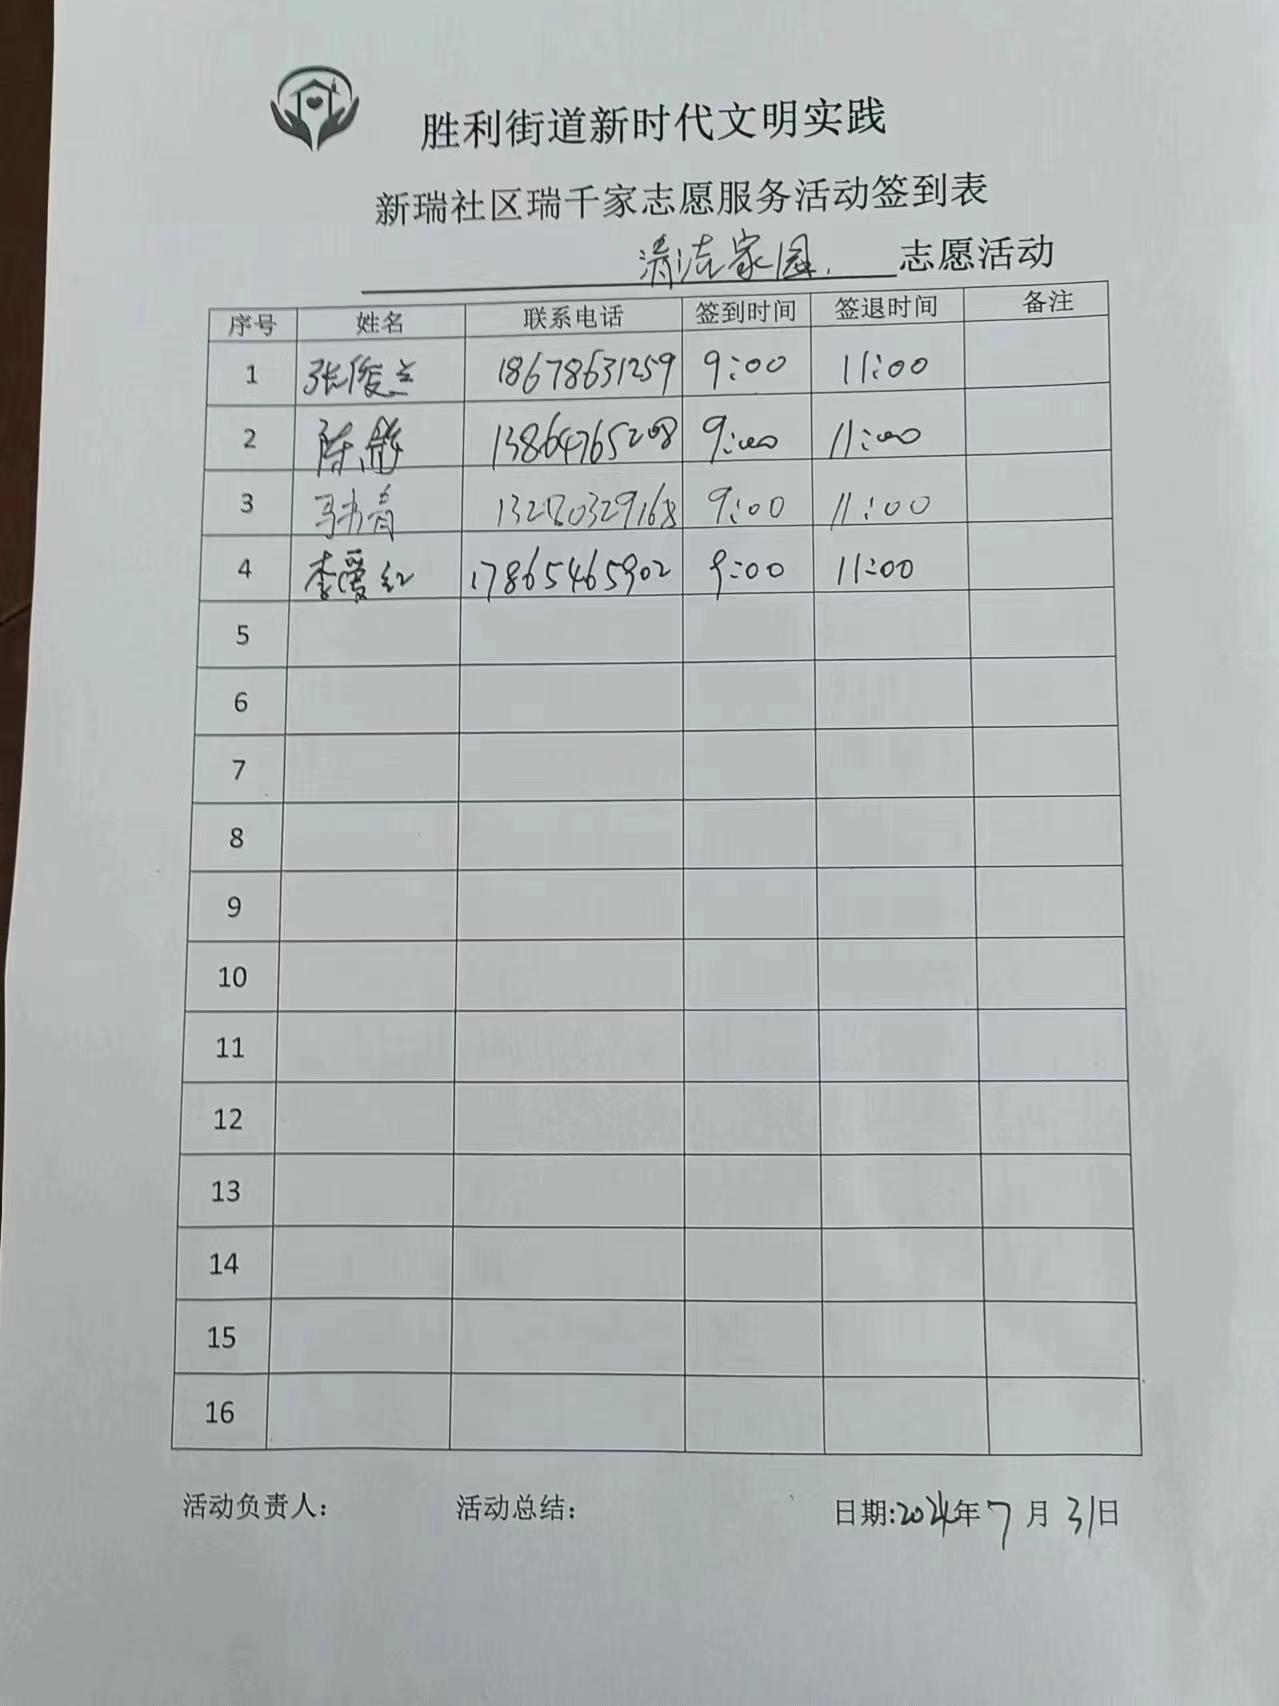 胜利街道新时代文明实践
新瑞社区瑞千家志愿服务活动签到表
清洁家园 志愿活动
序号 姓名 联系电话 签到时间 签退时间 备注
1 张俊兰 18678631259 9:00 11:00
2 陈静 13864765208 9:00 11:00
3 马书青 13280329168 9:00 11:00
4 李爱红 17865465902 9:00 11:00
5
6
7
8
9
10
11
12
13
14
15
16
活动负责人: 活动总结: 日期:2024年7月31日